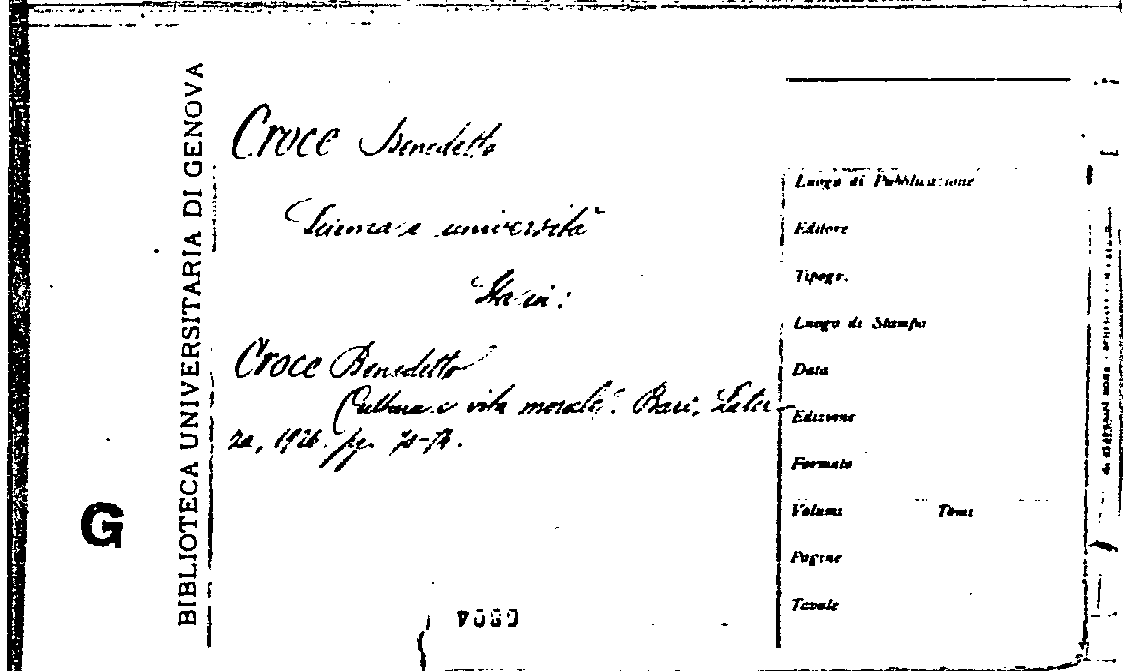 BIBLIOTECA UNIVERSITARIA DI GENOVA
Croce Benedetto
Scienza e università
Croce Benedetto
Cultura e vita morale. Bari, Later-
za, 1926. pg.
Luogo di Pubblicazione
Editore
Tipogr.
Luogo di Stampa
Data
Edizione
Formato
Volumi Tomi
Pagine
Tavole
G